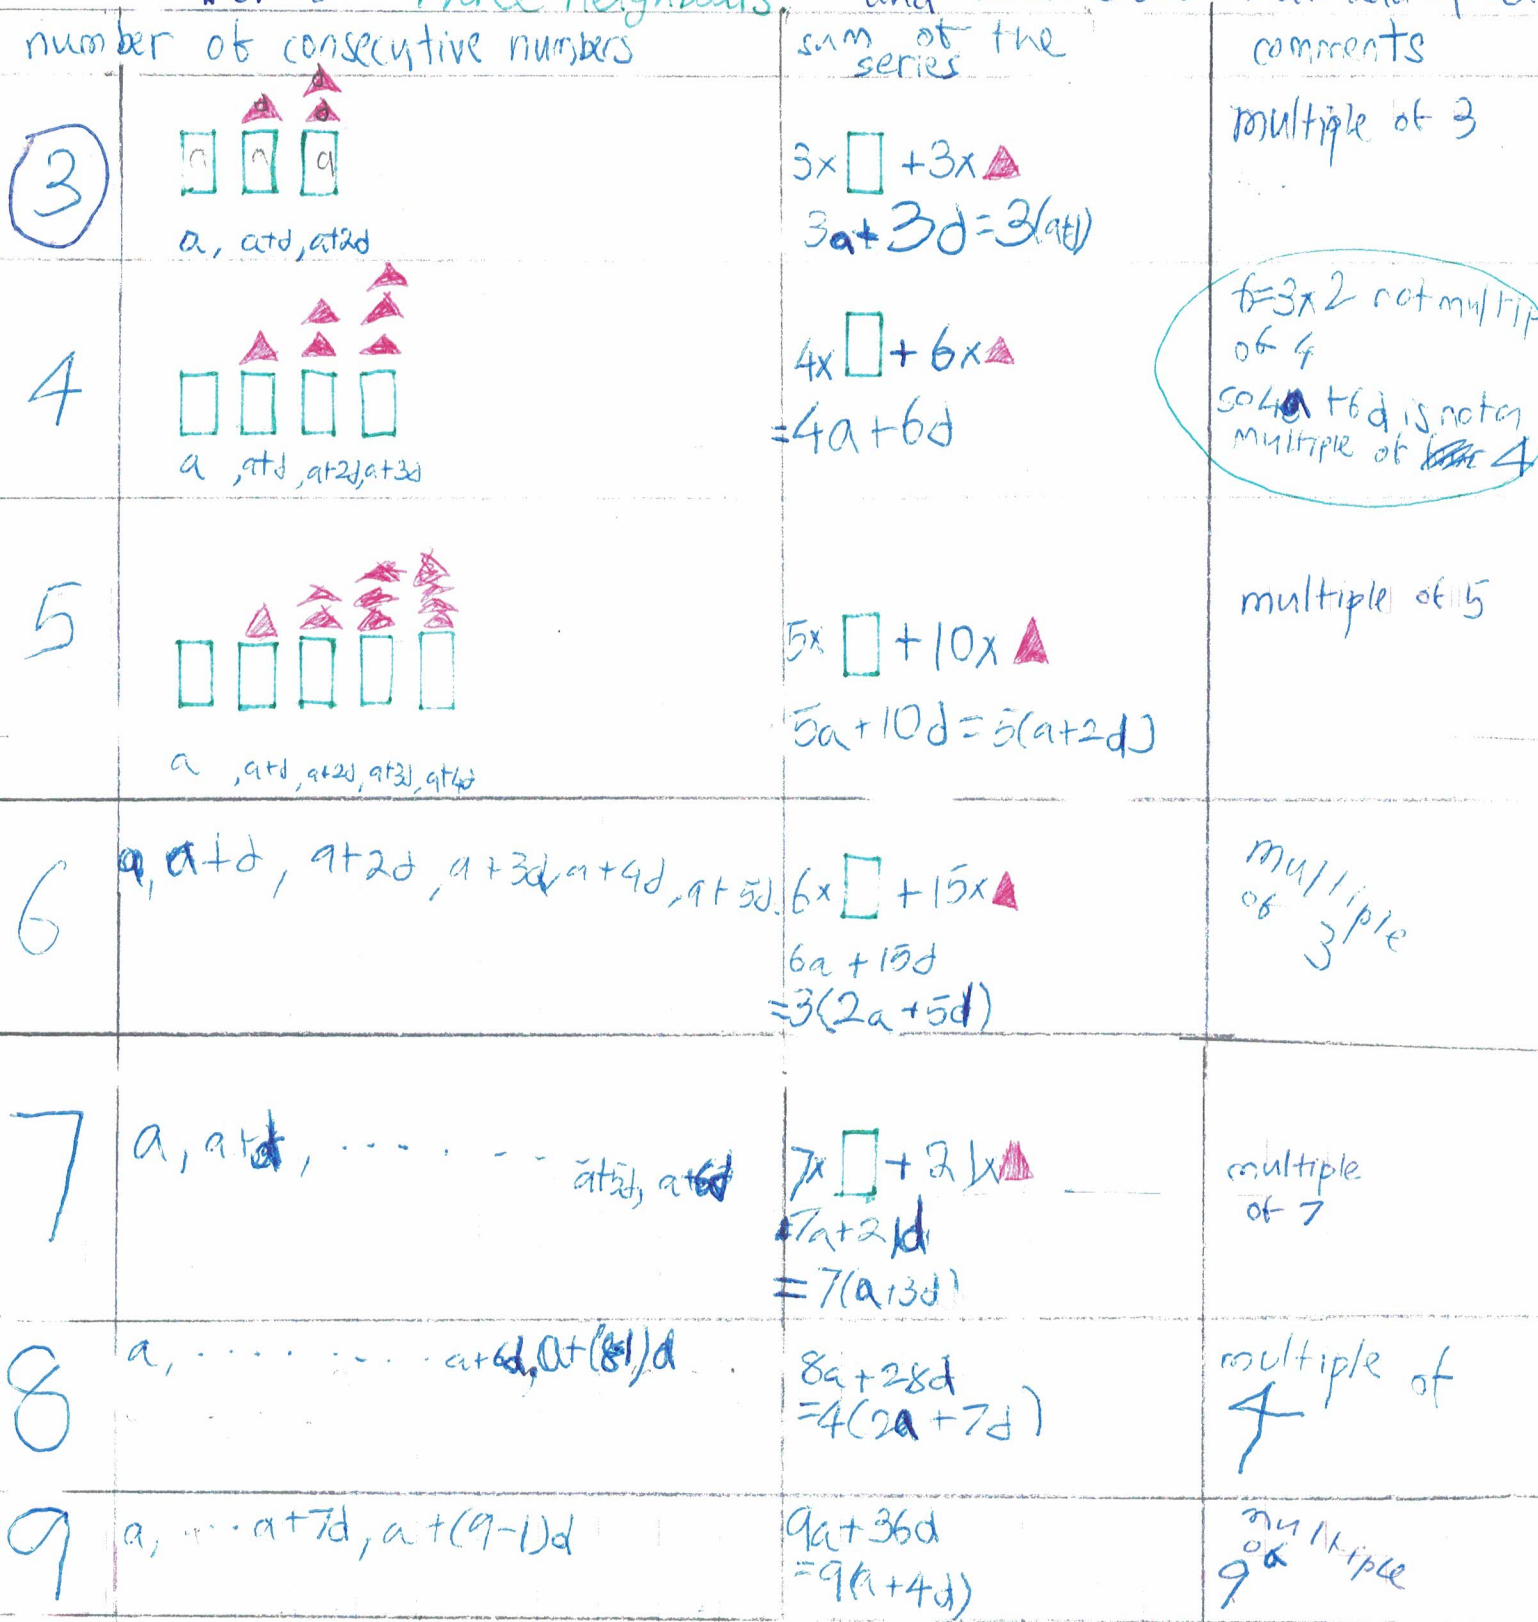 three neighbours and
number of consecutive numbers
sum of the
series
comments
3
d
d d d
a a a
a, a+d, a+2d
3x + 3x
3a + 3d = 3(a+d)
multiple of 3
4
a, a+d, a+2d, a+3d
4x + 6x
=4a+6d
6=3x2 not multip
of 4
so 4a +6d is not a
multiple of 4
5
a, a+d, a+2d, a+3d, a+4d
5x + 10x
5a+10d=5(a+2d)
multiple of 5
6
a, a+d, a+2d, a+3d, a+4d, a+5d.
6x + 15x
6a + 15d
=3(2a+5d)
multiple
of 3
7
a, a+d, ........ a+5d, a+6d
7x + 21x
=7a+21d
= 7(a+3d)
multiple
of 7
8
a, ........ a+6d, a+(8-1)d
8a+28d
=4(2a+7d)
multiple of
4
9
a, .... a+7d, a+(9-1)d
9a+36d
=9(a+4d)
multiple
of
9